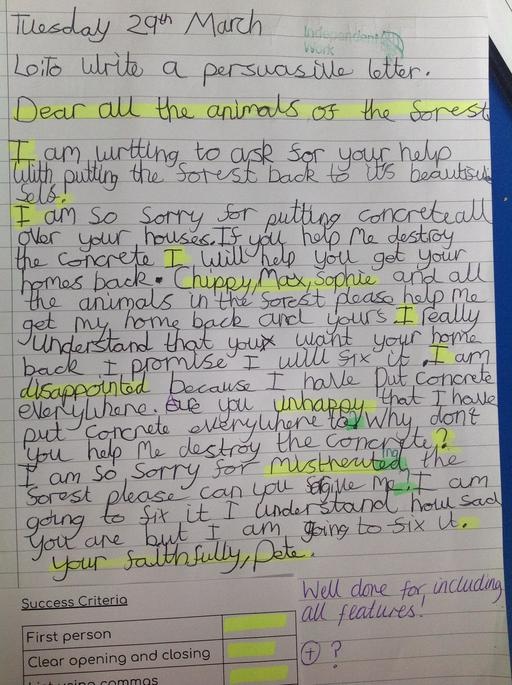 Tuesday 29th March
Independent Work
LoiTo Write a persuasive letter.
Dear all the animals of the forest
I am wrtting to ask for your help
with putting the forest back to it's beautiful
self.
I am so sorry for putting concrete all
over your houses. If you help me destroy
the concrete I will help you get your
homes back. Chippy, Max, Sophie and all
the animals in the forest please help me
get my home back and yours I really
understand that you want your home
back I promise I will fix it. I am
disappointed because I have put concrete
everywhere. Are you unhappy that I have
put concrete everywhere to Why don't
you help me destroy the concrete?
I am so sorry for mistreated ing the
forest please can you forgive me. I am
going to fix it I understand how sad
you are but I am going to fix it.
your faithfully, Pete.
Success Criteria
First person
Clear opening and closing
List using commas
Well done for including
all features!
+ ?